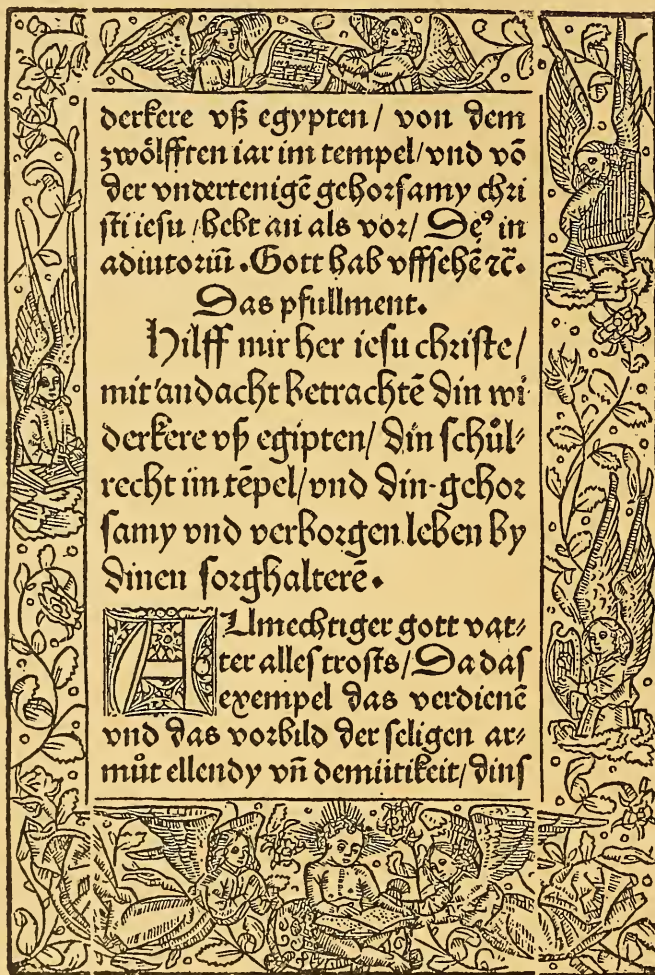 derkere vß egypten/ von dem
zwölfften iar im tempel/vnd vō
der vndertenigē gehorsamy chri
sti iesu /hebt an als vor/ Deꝰ in
adiutoriū. Gott hab vffsehē ⁊c̄.
Das pfullment.
Hilff mir her iesu christe/
mit andacht betrachtē din wi
derkere vß egipten/ din schůl⸗
recht im tēpel/vnd din gehor
samy vnd verborgen leben by
dinen sorghalterē.
ALmechtiger gott vat⸗
ter alles trosts/ Da das
exempel das verdienē
vnd das vorbild der seligen ar⸗
můt ellendy vn̄ demütikeit/ dins